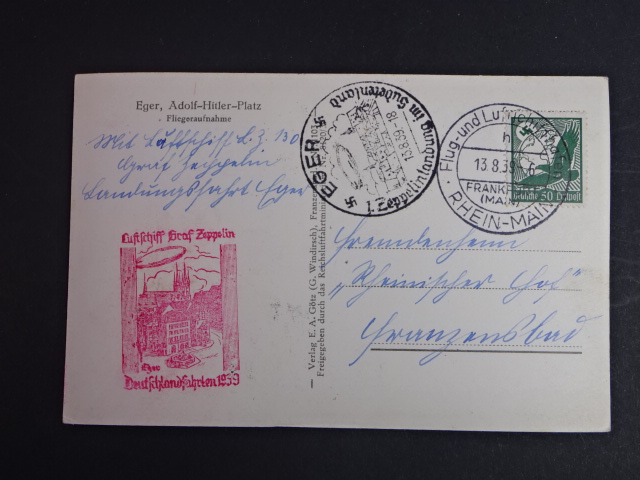 Eger, Adolf-Hitler-Platz
Fliegeraufnahme
Mit Luftschiff L.Z. 130
Graf Zeppelin
Landungsfahrt Eger
Luftschiff Graf Zeppelin
Eger
Deutschlandfahrten 1939
Verlag E. A. Götz (G. Windirsch), Franzens
Freigegeben durch das Reichsluftfahrtmini
EGER
1. Zeppelinlandung im Sudetenland
13.8.39-18
Flug- und Luft
h
13.8.39
FRANKF
(MAIN)
RHEIN-MAIN
50
Fremdenheim
"Rheinischer Hof"
Franzensbad